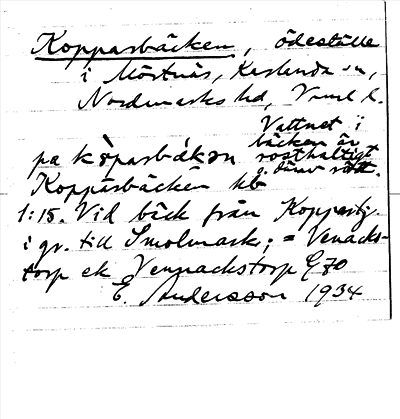 Kopparbäcken, ödeställe
i Mörtnäs, Karlanda sn,
Nordmarks hd, Vrml l.
Vattnet i
bäcken är
rosthaltigt
o. därav rött.
på kòparbäkən
Kopparbäcken hb
1:15. Vid bäck från Koppartj.
i gr. till Smolmark; = Venacks-
torp ek Vennackstorp E70
E. Andersson 1934